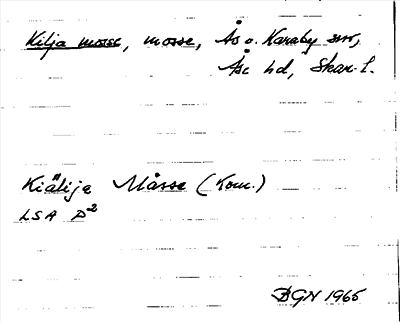 Kilja mosse, mosse, Ås o. Karaby snr,
Åse hd, Skar. l.
Kiälija Måsse (Kom.)
LSA D²
BGN 1965